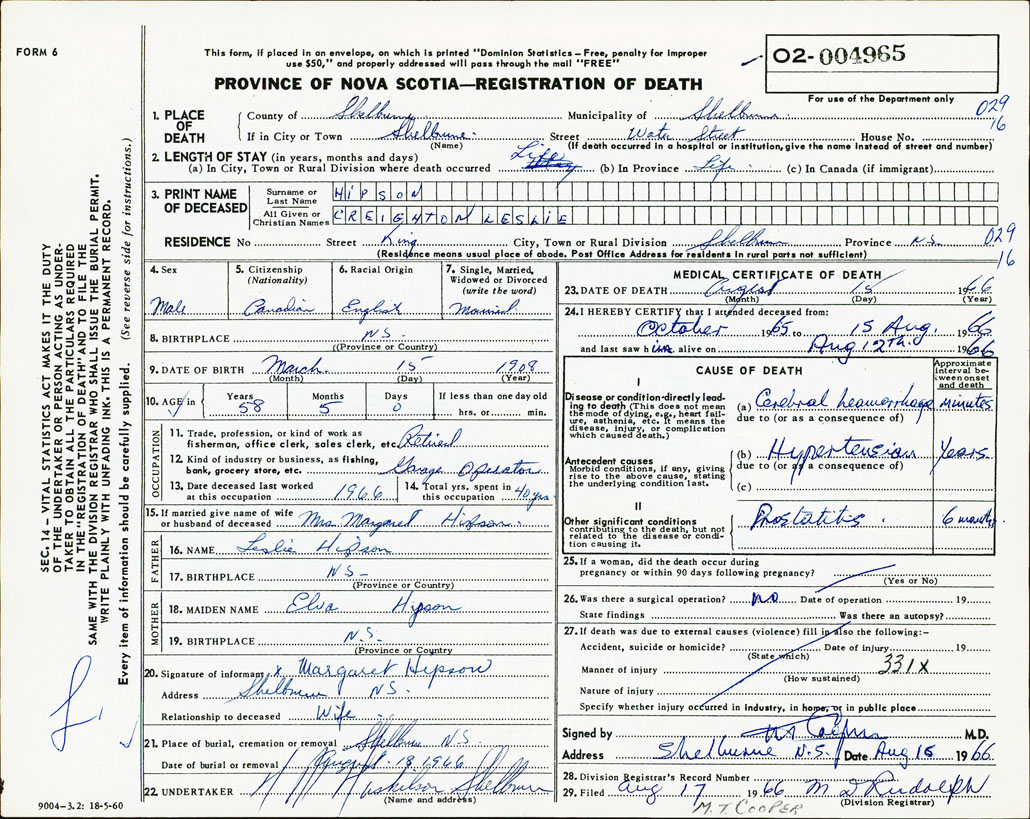 FORM 6
This form, if placed in an envelope, on which is printed "Dominion Statistics – Free, penalty for improper
use $50," and properly addressed will pass through the mail "FREE"
PROVINCE OF NOVA SCOTIA—REGISTRATION OF DEATH
02-004965
For use of the Department only
029
16
1. PLACE OF DEATH
County of Shelburne Municipality of Shelburne
If in City or Town Shelburne Street Water Street House No.
(Name) (If death occurred in a hospital or institution, give the name instead of street and number)
2. LENGTH OF STAY (in years, months and days)
(a) In City, Town or Rural Division where death occurred Life (b) In Province Life (c) In Canada (if immigrant)
3. PRINT NAME OF DECEASED
Surname or Last Name HIPSON
All Given or Christian Names CREIGHTON LESLIE
RESIDENCE No Street King City, Town or Rural Division Shelburne Province N.S.
(Residence means usual place of abode. Post Office Address for residents in rural parts not sufficient)
029
16
4. Sex
Male
5. Citizenship
(Nationality)
Canadian
6. Racial Origin
English
7. Single, Married,
Widowed or Divorced
(write the word)
Married
8. BIRTHPLACE N.S.
(Province or Country)
9. DATE OF BIRTH March 15 1908
(Month) (Day) (Year)
10. AGE in Years Months Days If less than one day old
58 5 0 hrs. or min.
OCCUPATION
11. Trade, profession, or kind of work as
fisherman, office clerk, sales clerk, etc. Retired
12. Kind of industry or business, as fishing,
bank, grocery store, etc. Garage Operator
13. Date deceased last worked
at this occupation 1966
14. Total yrs. spent in
this occupation 40 yrs
15. If married give name of wife
or husband of deceased Mrs. Margaret Hipson
FATHER
16. NAME Leslie Hipson
17. BIRTHPLACE N.S.
(Province or Country)
MOTHER
18. MAIDEN NAME Elva Hipson
19. BIRTHPLACE N.S.
(Province or Country)
20. Signature of informant x Margaret Hipson
Address Shelburne N.S.
Relationship to deceased Wife
21. Place of burial, cremation or removal Shelburne N.S.
Date of burial or removal August 18 1966
22. UNDERTAKER Shelburne
(Name and address)
MEDICAL CERTIFICATE OF DEATH
23. DATE OF DEATH August 15 1966
(Month) (Day)
24. I HEREBY CERTIFY that I attended deceased from:
October 1965 to 15 Aug. 1966
and last saw him alive on Aug 12th 1966
CAUSE OF DEATH
Approximate
interval be-
tween onset
and death
I
Disease or condition-directly lead-
ing to death (This does not mean
the mode of dying, e.g., heart fail-
ure, asthenia, etc. It means the
disease, injury, or complication
which caused death.)
(a) Cerebral heamorrhage minutes
due to (or as a consequence of)
Antecedent causes
Morbid conditions, if any, giving
rise to the above cause, stating
the underlying condition last.
(b) Hypertension Years
due to (or as a consequence of)
(c)
II
Other significant conditions
contributing to the death, but not
related to the disease or condi-
tion causing it.
Prostatitis. 6 months
25. If a woman, did the death occur during
pregnancy or within 90 days following pregnancy?
(Yes or No)
26. Was there a surgical operation? no Date of operation 19
State findings Was there an autopsy?
27. If death was due to external causes (violence) fill in also the following:–
Accident, suicide or homicide? Date of injury 19
(State which)
Manner of injury 331X
(How sustained)
Nature of injury
Specify whether injury occurred in industry, in home, or in public place
Signed by M T Cooper M.D.
Address Shelburne N.S. Date Aug 15 1966
28. Division Registrar's Record Number
29. Filed Aug 17 1966 M D Rudolph
(Division Registrar)
M.T. COOPER
SEC. 14 – VITAL STATISTICS ACT MAKES IT THE DUTY
OF THE UNDERTAKER OR PERSON ACTING AS UNDER-
TAKER TO OBTAIN ALL THE PARTICULARS REQUIRED
IN THE "REGISTRATION OF DEATH" AND TO FILE THE
SAME WITH THE DIVISION REGISTRAR WHO SHALL ISSUE THE BURIAL PERMIT.
WRITE PLAINLY WITH UNFADING INK. THIS IS A PERMANENT RECORD.
Every item of information should be carefully supplied. (See reverse side for instructions.)
9004-3.2: 18-5-60